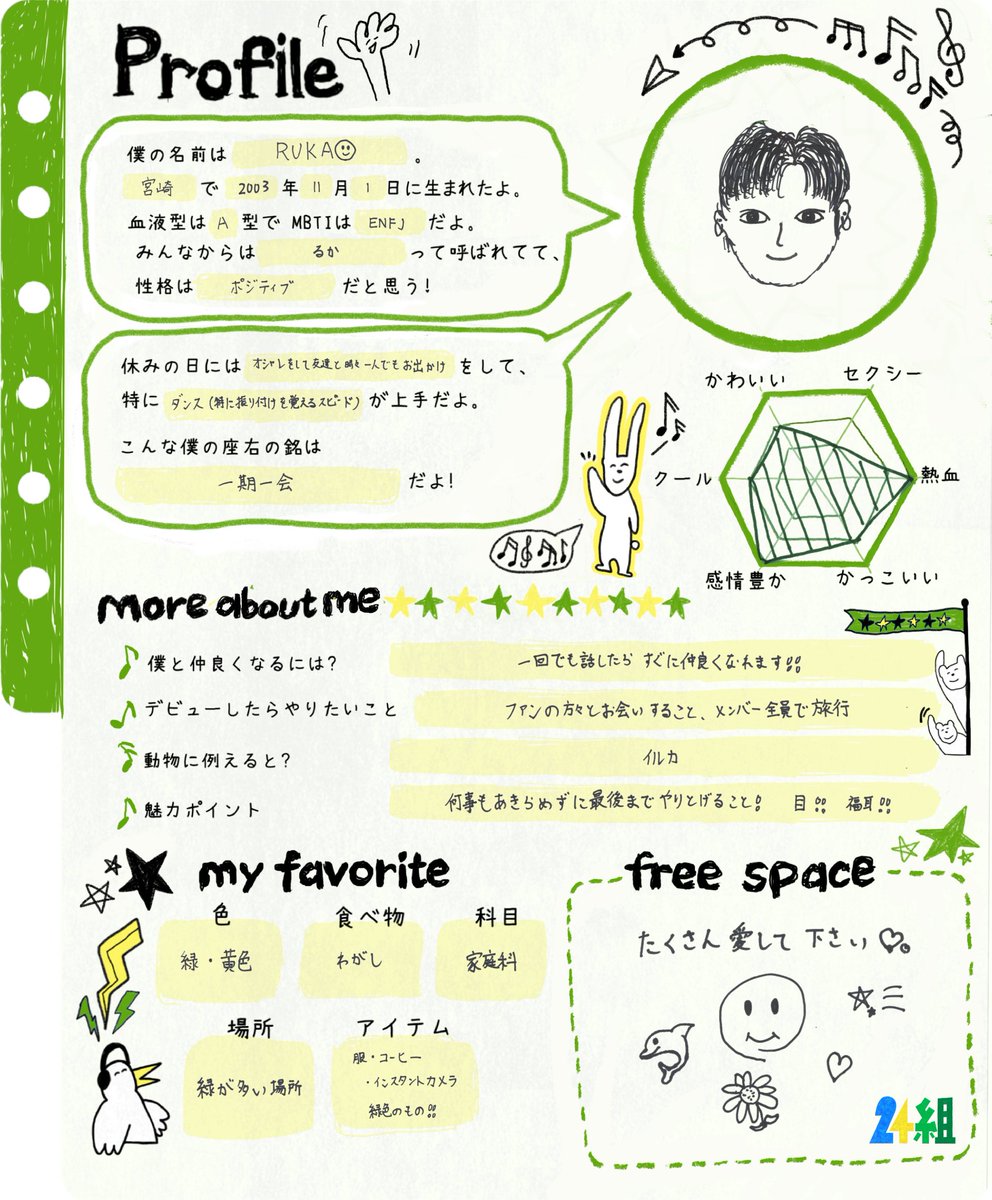 Profile
僕の名前は RUKA 。
宮崎 で 2003 年 11 月 1 日に生まれたよ。
血液型は A 型で MBTIは ENFJ だよ。
みんなからは るか って呼ばれてて、
性格は ポジティブ だと思う!
休みの日には オシャレをして友達と時々一人でもお出かけ をして、
特に ダンス(特に振り付けを覚えるスピード) が上手だよ。
こんな僕の座右の銘は
一期一会 だよ!
かわいい セクシー
クール 熱血
感情豊か かっこいい
more about me
僕と仲良くなるには? 一回でも話したら すぐに仲良くなれます!!
デビューしたらやりたいこと ファンの方々とお会いすること、メンバー全員で旅行
動物に例えると? イルカ
魅力ポイント 何事もあきらめずに最後までやりとげること! 目!! 福耳!!
my favorite
色 食べ物 科目
緑・黄色 わがし 家庭科
場所 アイテム
緑が多い場所
服・コーヒー
・インスタントカメラ
緑色のもの!!
free space
たくさん愛して下さい♡。
24組